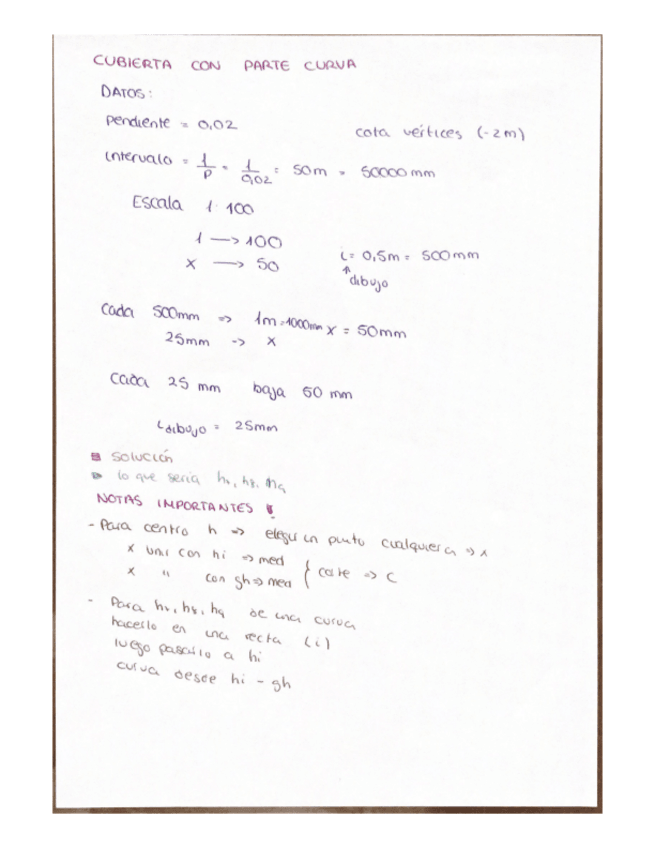 CUBIERTA CON PARTE CURVA
DATOS:
Pendiente = 0,02
cota vértices (-2m)
Intervalo = 1/P = 1/0,02 = 50m = 50000 mm
Escala 1:100
1 —> 100
x —> 50
i = 0,5m = 500mm
↑
dibujo
Cada 500mm => 1m = 1000mm x = 50mm
25mm -> x
Cada 25 mm baja 50 mm
i dibujo = 25mm
solución
lo que sería
NOTAS IMPORTANTES
- Para centro h => elegir un punto cualquiera => x
x uni con hi => med
x " con gh => med } corte => C
- Para de una curva
hacerlo en una recta (i)
luego pasarlo a hi
curva desde hi - gh